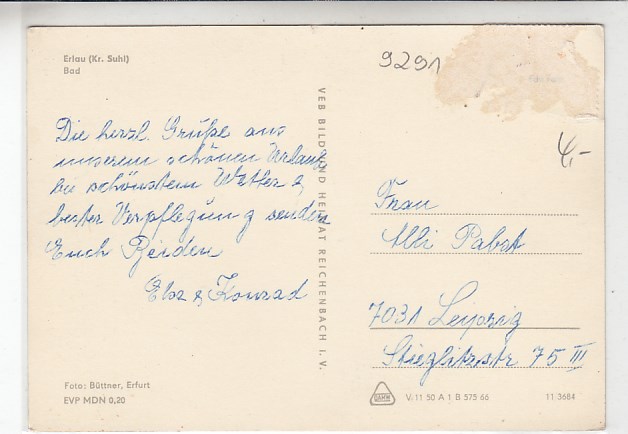 Erlau (Kr. Suhl)
Bad
9291
4,-
Die herzl. Grüße aus
unserem schönen Urlaub
bei schönstem Wetter &
bester Verpflegung senden
Euch Beiden
Else & Konrad
VEB BILD UND HEIMAT REICHENBACH I. V.
Frau
Elli Pabst
7031 Leipzig
Stieglitzstr 75 III
Foto: Büttner, Erfurt
EVP MDN 0,20
V. 11 50 A 1 B 575 66
11 3684